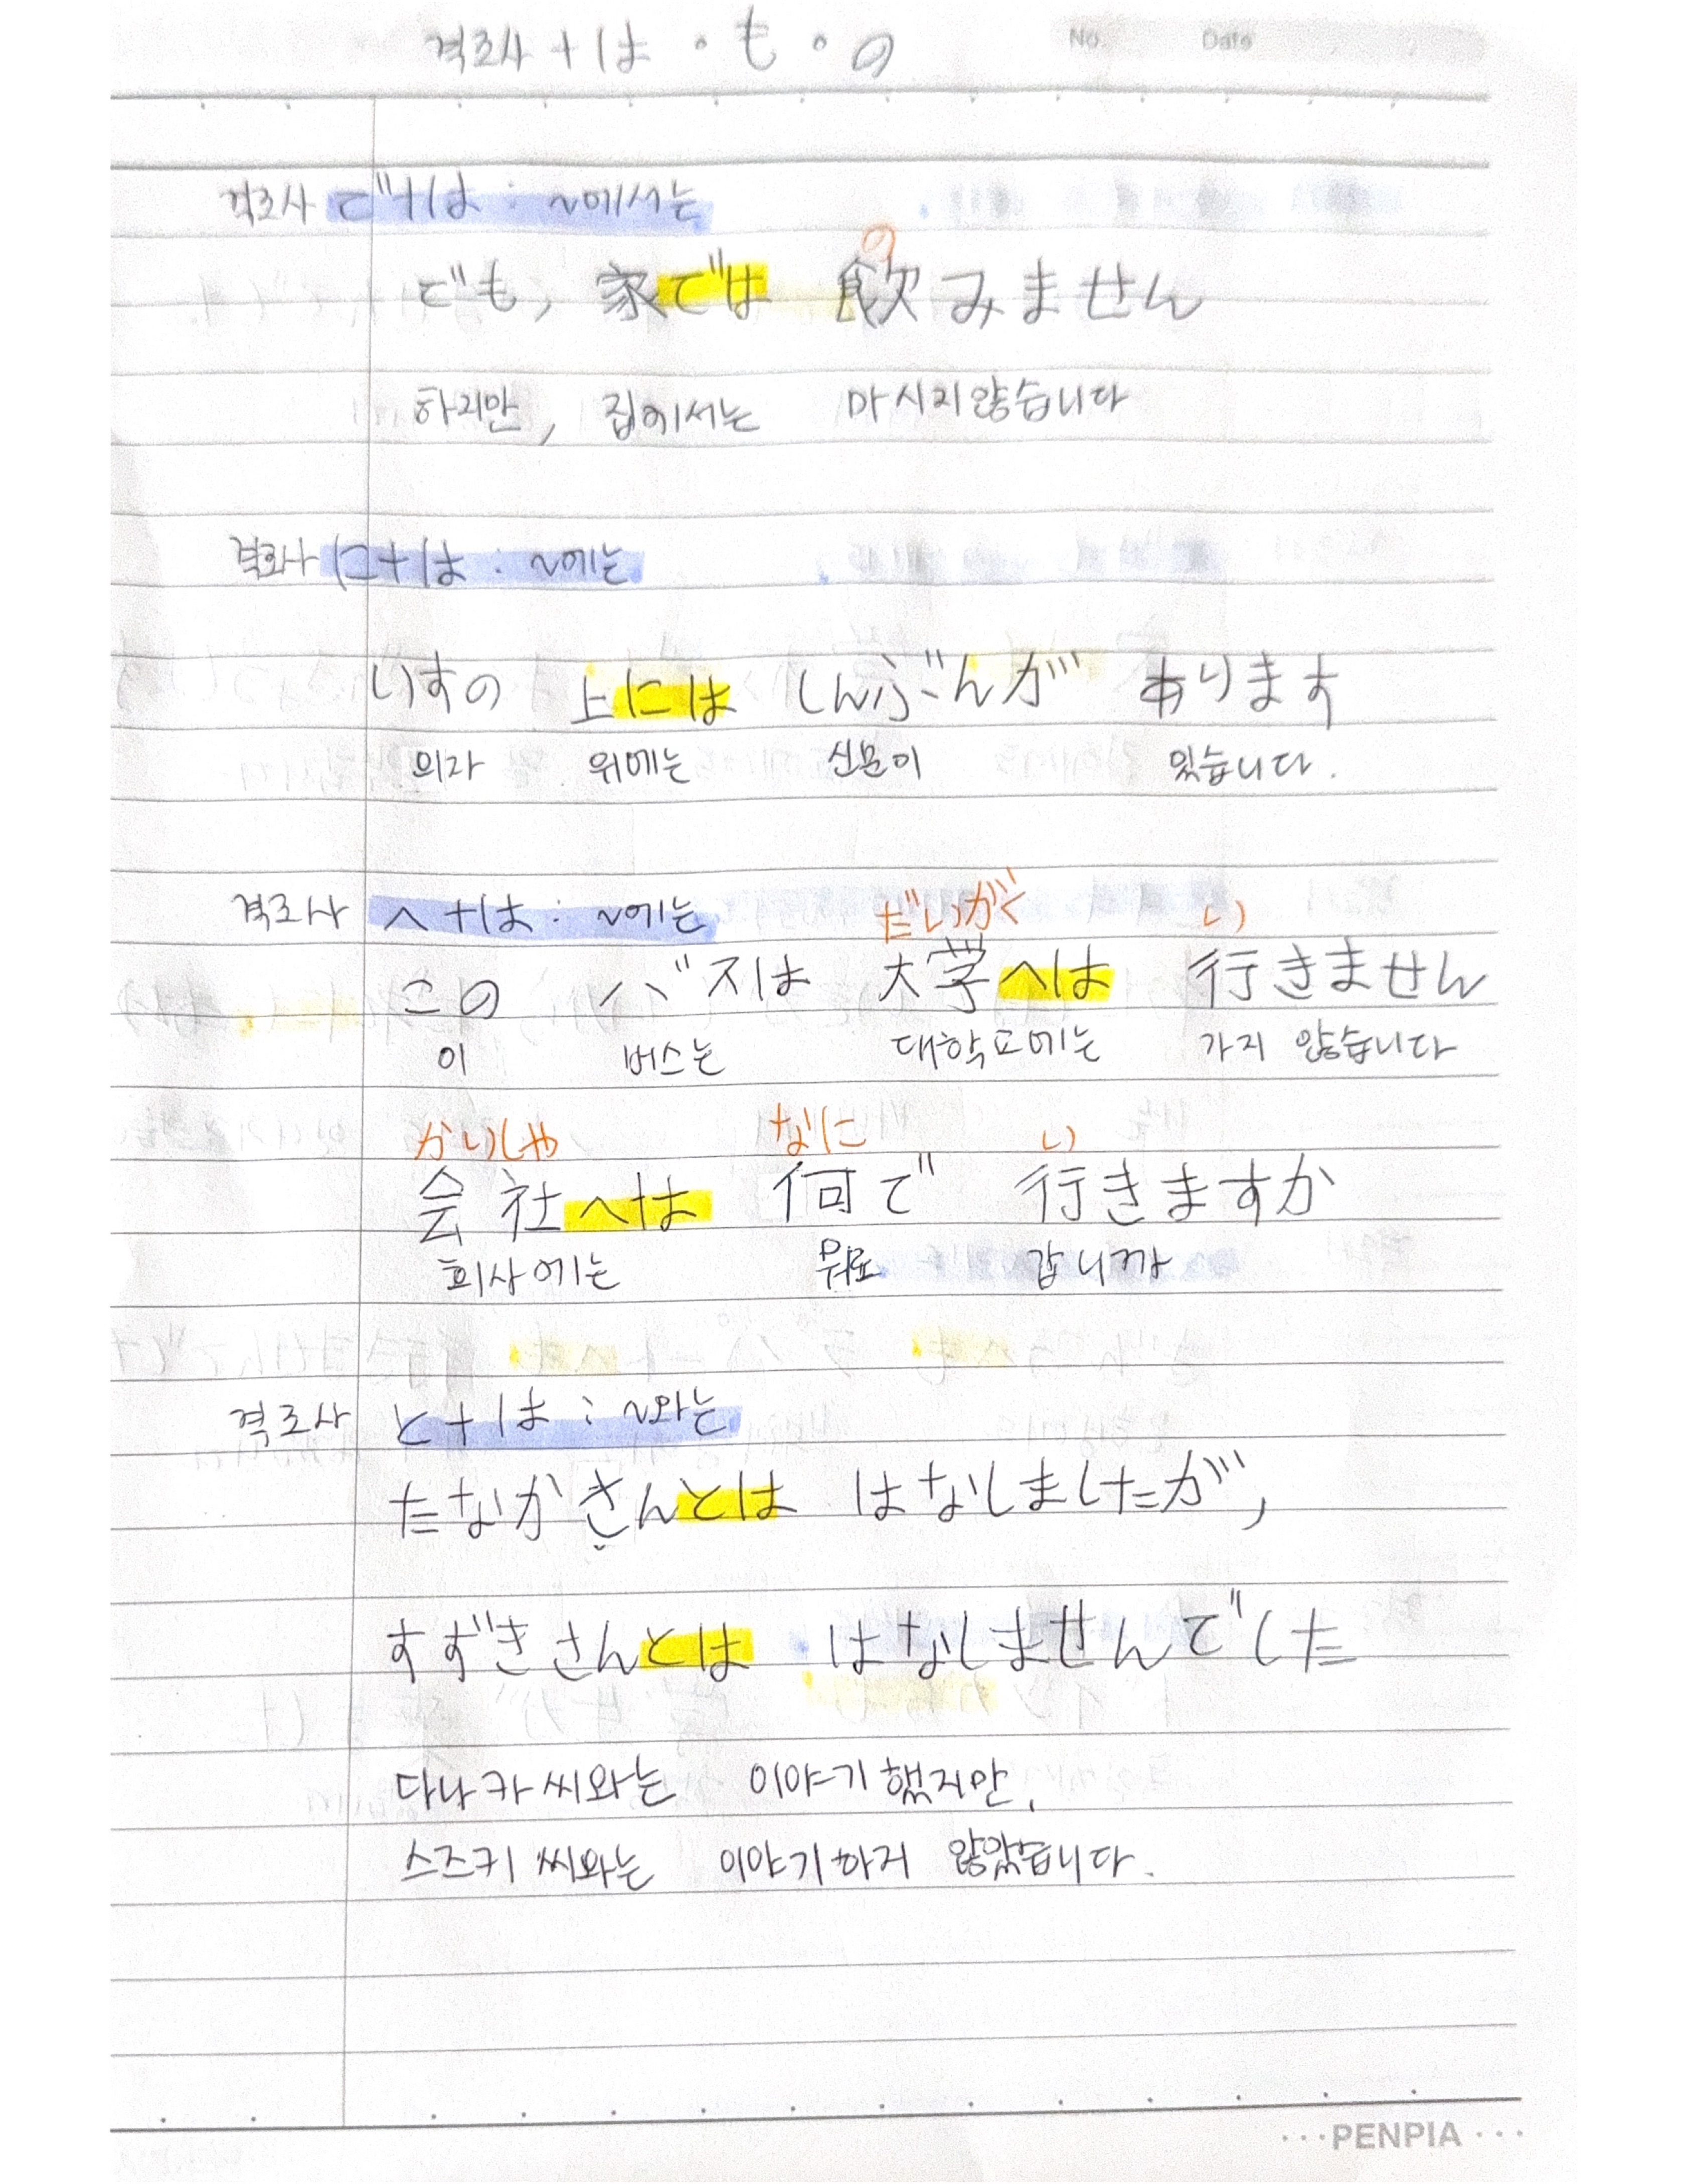 격조사 + は・も・の
No. Date
격조사 で+は : ~에서는
の
でも, 家では 飲みません
하지만, 집에서는 마시지않습니다
격조사 に+は : ~에는
いすの 上には しんぶんが あります
의자 위에는 신문이 있습니다.
격조사 へ+は : ~에는
だいがく い
この バスは 大学へは 行きません
이 버스는 대학교에는 가지 않습니다
かいしゃ なに い
会社へは 何で 行きますか
회사에는 뭐로 갑니까
격조사 と+は : ~와는
たなかさんとは はなしましたが,
すずきさんとは はなしませんでした
다나카씨와는 이야기했지만,
스즈키 씨와는 이야기하지 않았습니다.
···PENPIA···